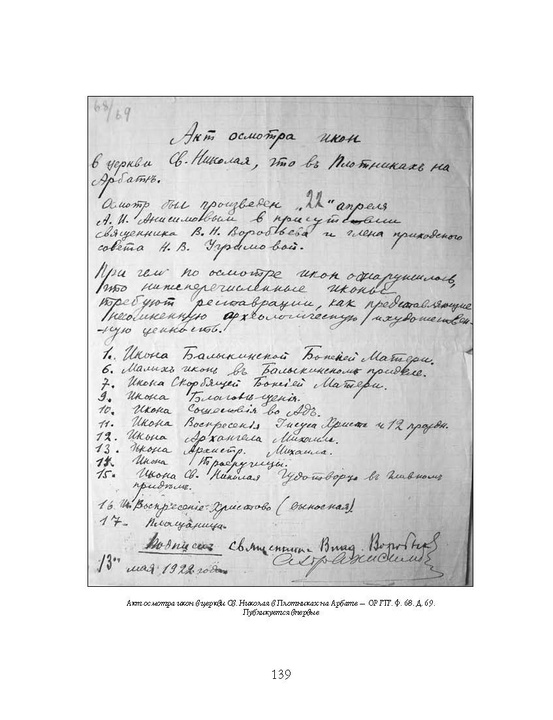 68/69
Акт осмотра икон
в церкви Св. Николая, что въ Плотникахъ на
Арбатѣ.
Осмотр был произведен „22“ апреля
А. И. Анисимовым в присутствии
священника В. Н. Воробьева и члена приходского
совета Н. В. Угримовой.
При чем по осмотре икон обнаружилось,
что нижеперечисленные иконы
требуют реставрации, как представляющие
несомненную археологическую и художествен-
-ную ценность.
1. Икона Балыкинской Божией Матери.
6. Малыхъ иконъ въ Балыкинскомъ приделе.
7. Икона Скорбящей Божіей Матери.
9. Икона Благовещенія.
10. Икона Сошествія во Адъ.
11. Икона Воскресенія Іисуса Христа и 12 праздн.
12. Икона Архангела Михаила.
13. Икона Архистр. Михаила.
14. Икона Троеручицы.
15. Икона Св. Николая Чудотворца въ главномъ
приделе.
16. И. Воскресеніе Христово (выносная)
17. Плащаница.
Подписал священник Влад. Воробьев
13 мая 1922 года
Акт осмотра икон в церкви Св. Николая в Плотниках на Арбате — ОР ГТГ. Ф. 68. Д. 69.
Публикуется впервые
139